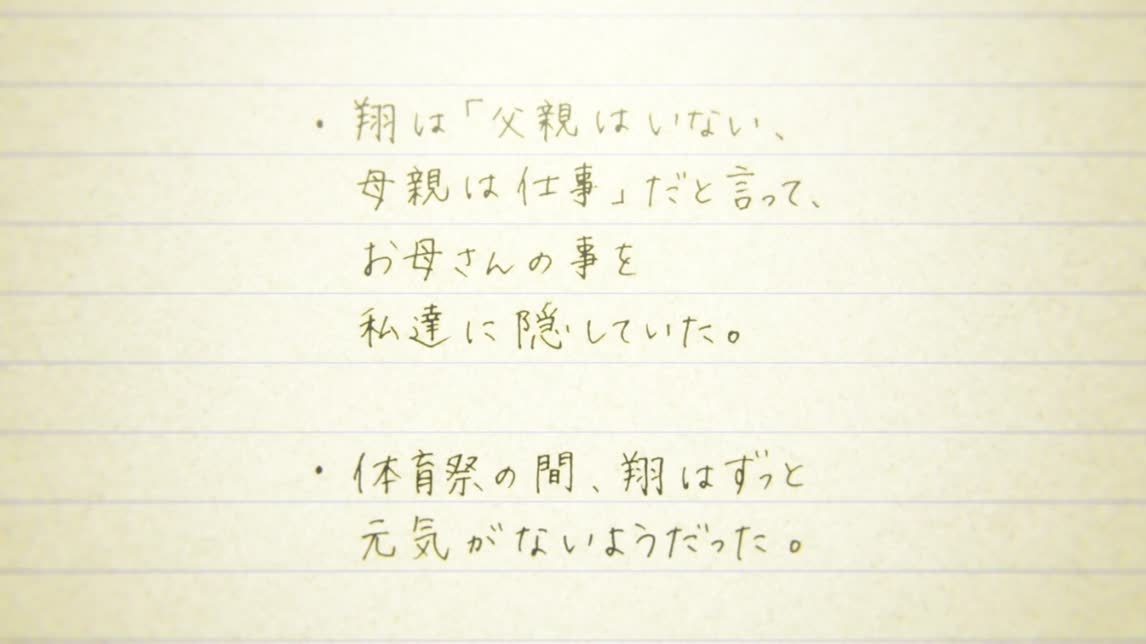 ・翔は「父親はいない、
母親は仕事」だと言って、
お母さんの事を
私達に隠していた。
・体育祭の間、翔はずっと
元気がないようだった。